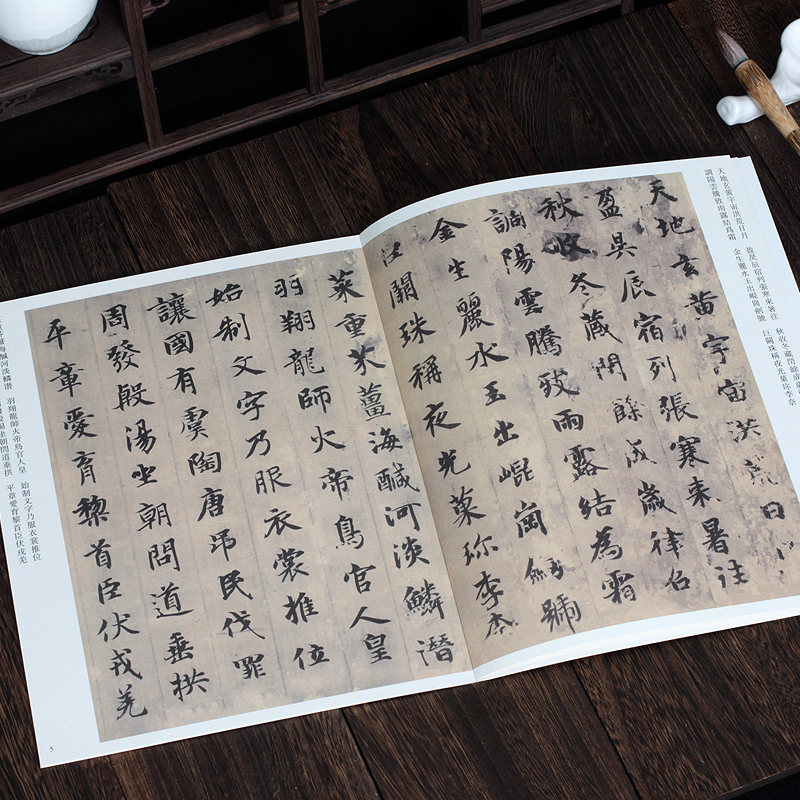 天地玄黃宇宙洪荒日月 盈昃辰宿列張寒來暑往 秋收冬藏閏餘成
調陽雲騰致雨露結爲霜 金生麗水玉出崐崗劍號 巨闕珠稱夜光菓珍李柰
天地玄黄宇宙洪荒日月
盈昃辰宿列張寒来暑往
秋收冬蔵閏餘成歲律吕
調陽雲騰致雨露結為霜
金生麗水玉出崐崗劒號
巨闕珠稱夜光菓珎李柰
菜重芥薑海醎河淡鱗潛
羽翔龍師火帝鳥官人皇
始制文字乃服衣裳推位
讓國有虞陶唐弔民伐罪
周發殷湯坐朝問道垂拱
平章愛育黎首臣伏戎羌
海醎河淡鱗潛 羽翔龍師火帝鳥官人皇 始制文字乃服衣裳推位
殷湯坐朝問道垂拱 平章愛育黎首臣伏戎羌
5